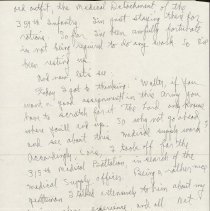 old outfit, the Medical Detachment of the
359th Infantry. I'm just staying there for
rations. So far I've been awfully fortunate
in not being required to do any work. So I've
been resting up.
Well now, let's see.
Today I got to thinking, "Walter, if you
want a good assignment in this army you
have to scratch for it. The Lord only knows
where you'll end up. So let's go ahead
and see about this medical supply work."
Accordingly, I took off for the
315th Medical Battalion in search of the
medical supply officer. Being a rather
I talked extensively to him about my
experience and all. Not